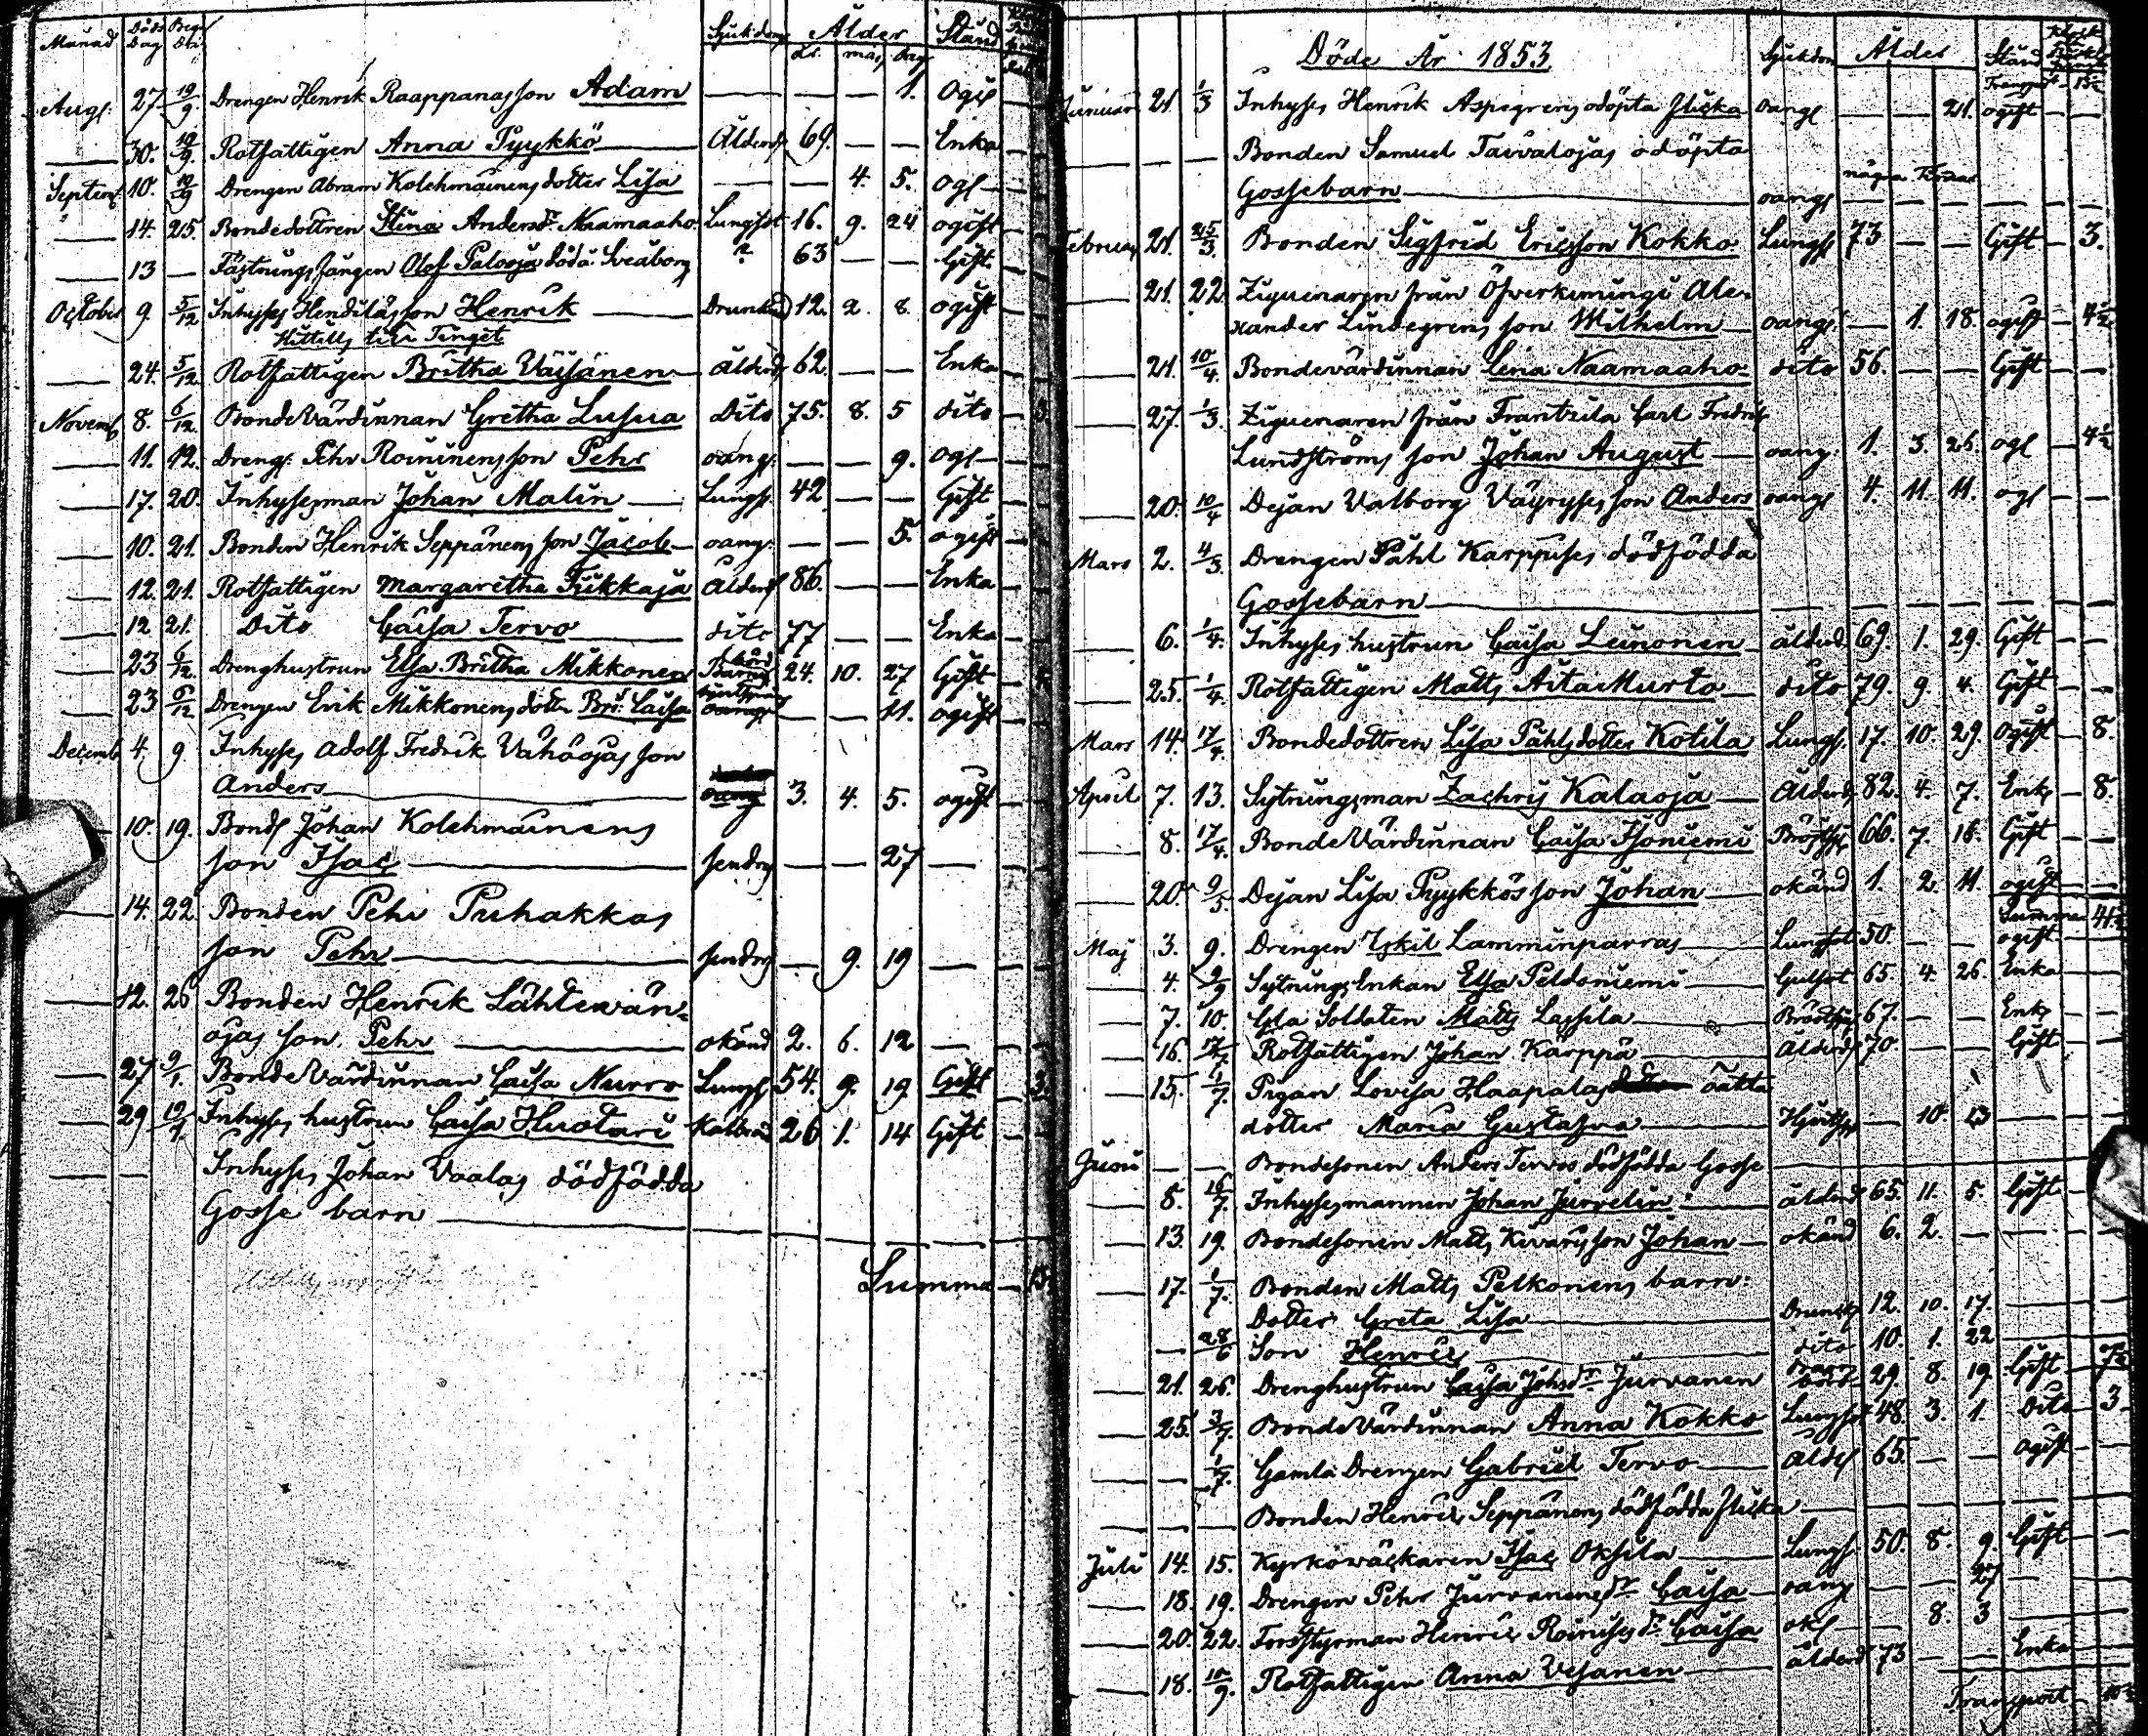 Månad Döds Dag Begr. Dn Sjukdom Ålder Stånd
År. mån. dag.
Aug. 27 19/9. Drengen Henrik Raappanas son Adam — — — 1. Ogift
— 30. 19/9. Rotfattigen Anna Pyykkö Ålderd. 69. — — Enka
Septemb. 10. 19/9 Drengen Abram Kolehmainens dotter Lisa — — 4. 5. Ogf
— 14. 25. Bondedottren Stina Andersdr. Naamaaho Lungsot 16. 9. 24 ogift
— 13 — Fästnings fången Olof Palooja död å Sveaborg ? 63 — — Gift
October 9. 5/12 Inhyses Hendiläs son Henrik Drunknad 12. 2. 8. ogift
Hittills till Tinget
— 24. 5/12 Rotfattigen Britha Väisänen ålderd. 62. — — Enka
Novemb. 8. 6/12. BondeVärdinnan Gretha Lusua Dito 75. 8. 5 dito
— 11. 12. Dreng. Pehr Roininens son Pehr oang. — — 9. Ogf
— 17. 20. Inhysesman Johan Malin Lungs. 42 — — Gift
— 10. 21. Bonden Henrik Seppänens son Jacob oang. — — 5. ogift
— 12. 21. Rotfattigen Margaretha Tikkaja Ålderd. 86. — — Enka
12 21. Dito Caisa Tervo dito 77 — — Enka
— 23 6/12. Drenghustrun Elsa Britha Mikkonen Barns 24. 10. 27 Gift
— 23 6/12 Drengen Erik Mikkonens dotter Bri. Caisa oang. — — 11. ogift
Decemb. 4. 9 Inhyses Adolf Fredrik Vähäojas son
Anders oang 3. 4. 5. ogift
10. 19. Bond. Johan Kolehmainens
son Isac — — 27 —
— 14. 22. Bonden Pehr Puhakkas
son Pehr — 9. 19 —
— 12. 26 Bonden Henrik Lähtevän-
ojas son Pehr okänd 2. 6. 12 —
— 27 9/1. BondeVärdinnan Caisa Nurro Lungs. 54. 9. 19 Gift 3.
— 29 Inhyses hustrun Caisa Huotari Kallbrand 26 1. 14 Gift
— — Inhyses Johan Vaalas dödfödda
Gosse barn
Summa
Döde År 1853. Sjukdom Ålder Stånd
Januari 21. 1/3 Inhyses Henrik Aspegrens odöpta flicka oangf — — 21. ogift
— — — Bonden Samuel Taivalojas odöpta
några timmar
Gossebarn oangf — — —
Februari 21. 25/3. Bonden Sigfrid Ericsson Kokko Lungs. 73 — — Gift 3.
— 21. 22. Ziguenaren från Öfverkiminge Ale-
xander Lindegrens son Wilhelm oangf. — 1. 18. ogift 4½
— 21. 10/4. Bondevärdinnan Lena Naamaaho dito 56. — — Gift
— 27. 1/3. Ziguenaren från Frantsila Carl Fredrik
Lundströms son Johan August oang. 1. 3. 26. ogf 4½
— 20. 10/4 Dejan Valborg Väyryses son Anders oangf 4. 11. 11. ogf
Mars 2. 4/3. Drengen Påhl Karppises dödfödda
Gossebarn
— 6. 1/4. Inhyses hustrun Caisa Leinonen ålderd. 69. 1. 29. Gift
— 25. 1/4. Rotfattigen Matts AitaMurto dito 79. 9. 4. Gift
Mars 14. 17/4. Bondedottren Lisa Påhlsdotter Kotila Lungs. 17. 10. 29. Ogift 8.
April 7. 13. Sytningsman Zachris Kalaoja Ålderd. 82. 4. 7. Enkl. 8.
— 8. 17/4. BondeVärdinnan Caisa Isoniemi Bröstsj. 66. 7. 18. Gift
— 20. 9/5. Dejan Lisa Pyykkös son Johan okänd 1. 2. 11. ogift
Summa 41½
Maj 3. 9. Drengen Eskil Lamminparras Lungsot 50. — — ogift
— 4. Sytnings Enkan Elsa Peldoniemi Gulsot 65. 4. 26. Enka
— 7. 10. Gla Soldaten Matts Lassila Bröstsj. 67. — — Enkl.
— 16. Rotfattigen Johan Karppa Ålderd. 70. — — Gift
— 15. 1/7. Pigan Lovisa Haapalas oäkta
dotter Maria Gustafva — 10. 13
Juni — — Bondesonen Anders Tervos dödfödda Gosse
— 8. 16/7. Inhysesmannen Johan Jurvelin ålderd. 65. 11. 5. Gift
— 13. 19. Bondesonen Matts Kivaris son Johan okänd 6. 2. —
— 17. 1/7. Bonden Matts Pelkonens barn:
Dotter Greta Lisa Drunk. 12. 10. 17.
— 28/6 Son Henrik dito 10. 1. 22
— 21. 26. Drenghustrun Caisa Johsdr. Jurvanen Barns 29. 8. 19. Gift 7½
— 25. 3/7. BondeVärdinnan Anna Kokko Lungsot 48. 3. 1. Dito 3
— — 1/7. Gamla Drengen Gabriel Tervo Ålder. 65. — — Ogift
— — — Bonden Henrik Seppänens dödfödda flicka
Juli 14. 15. Kyrkoväckaren Isac Oksila Lungs. 50. 8. 9. Gift
— 18. 19. Drengen Pehr Jurvanens dr. Caisa oang — — 27
— 20. 22. Forsstyrman Henrik Roinises dr. Caisa ok. — 8. 3
— 18. 10/9. Rotfattigen Anna Vesanen ålderd. 73 — — Enka
Transport